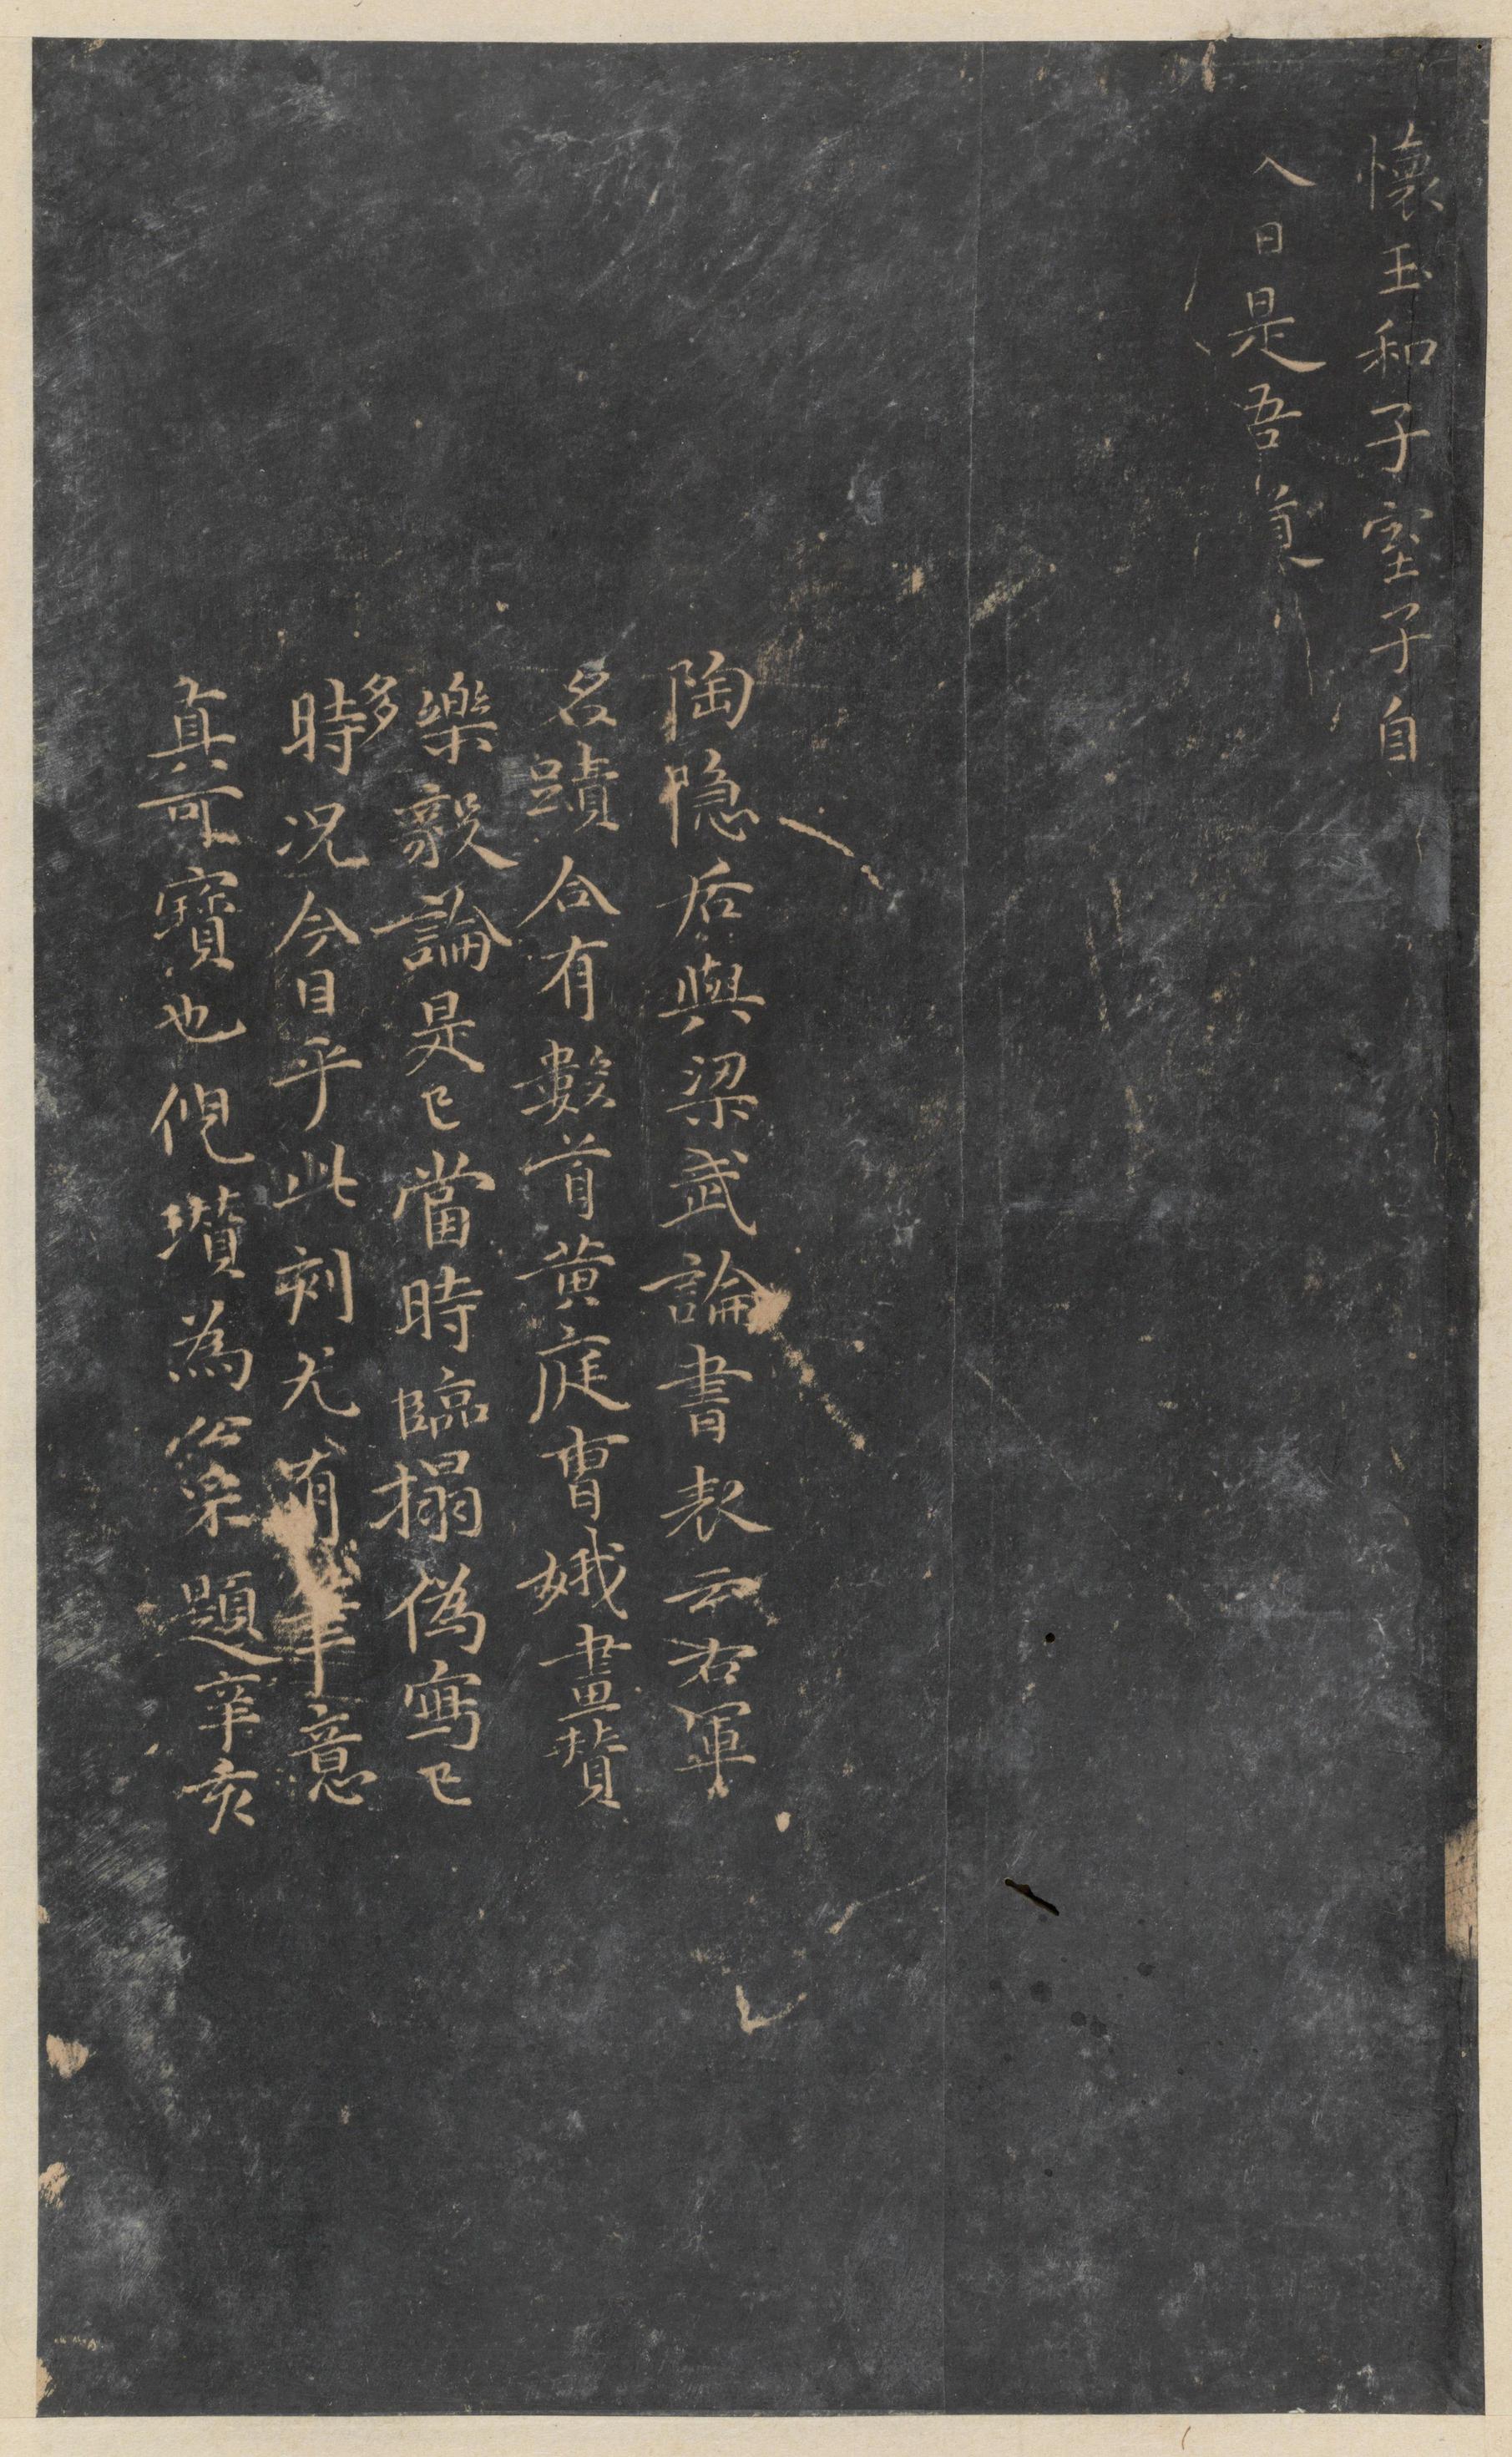 懷玉和子室子自
入日是吾道
陶隐居與梁武論書表云右軍
名蹟合有數首黃庭曹娥畫贊
樂毅論是已當時臨搨偽寫已多
時况今日乎此刻尤有筆意
真可寶也倪瓚為公采題辛亥